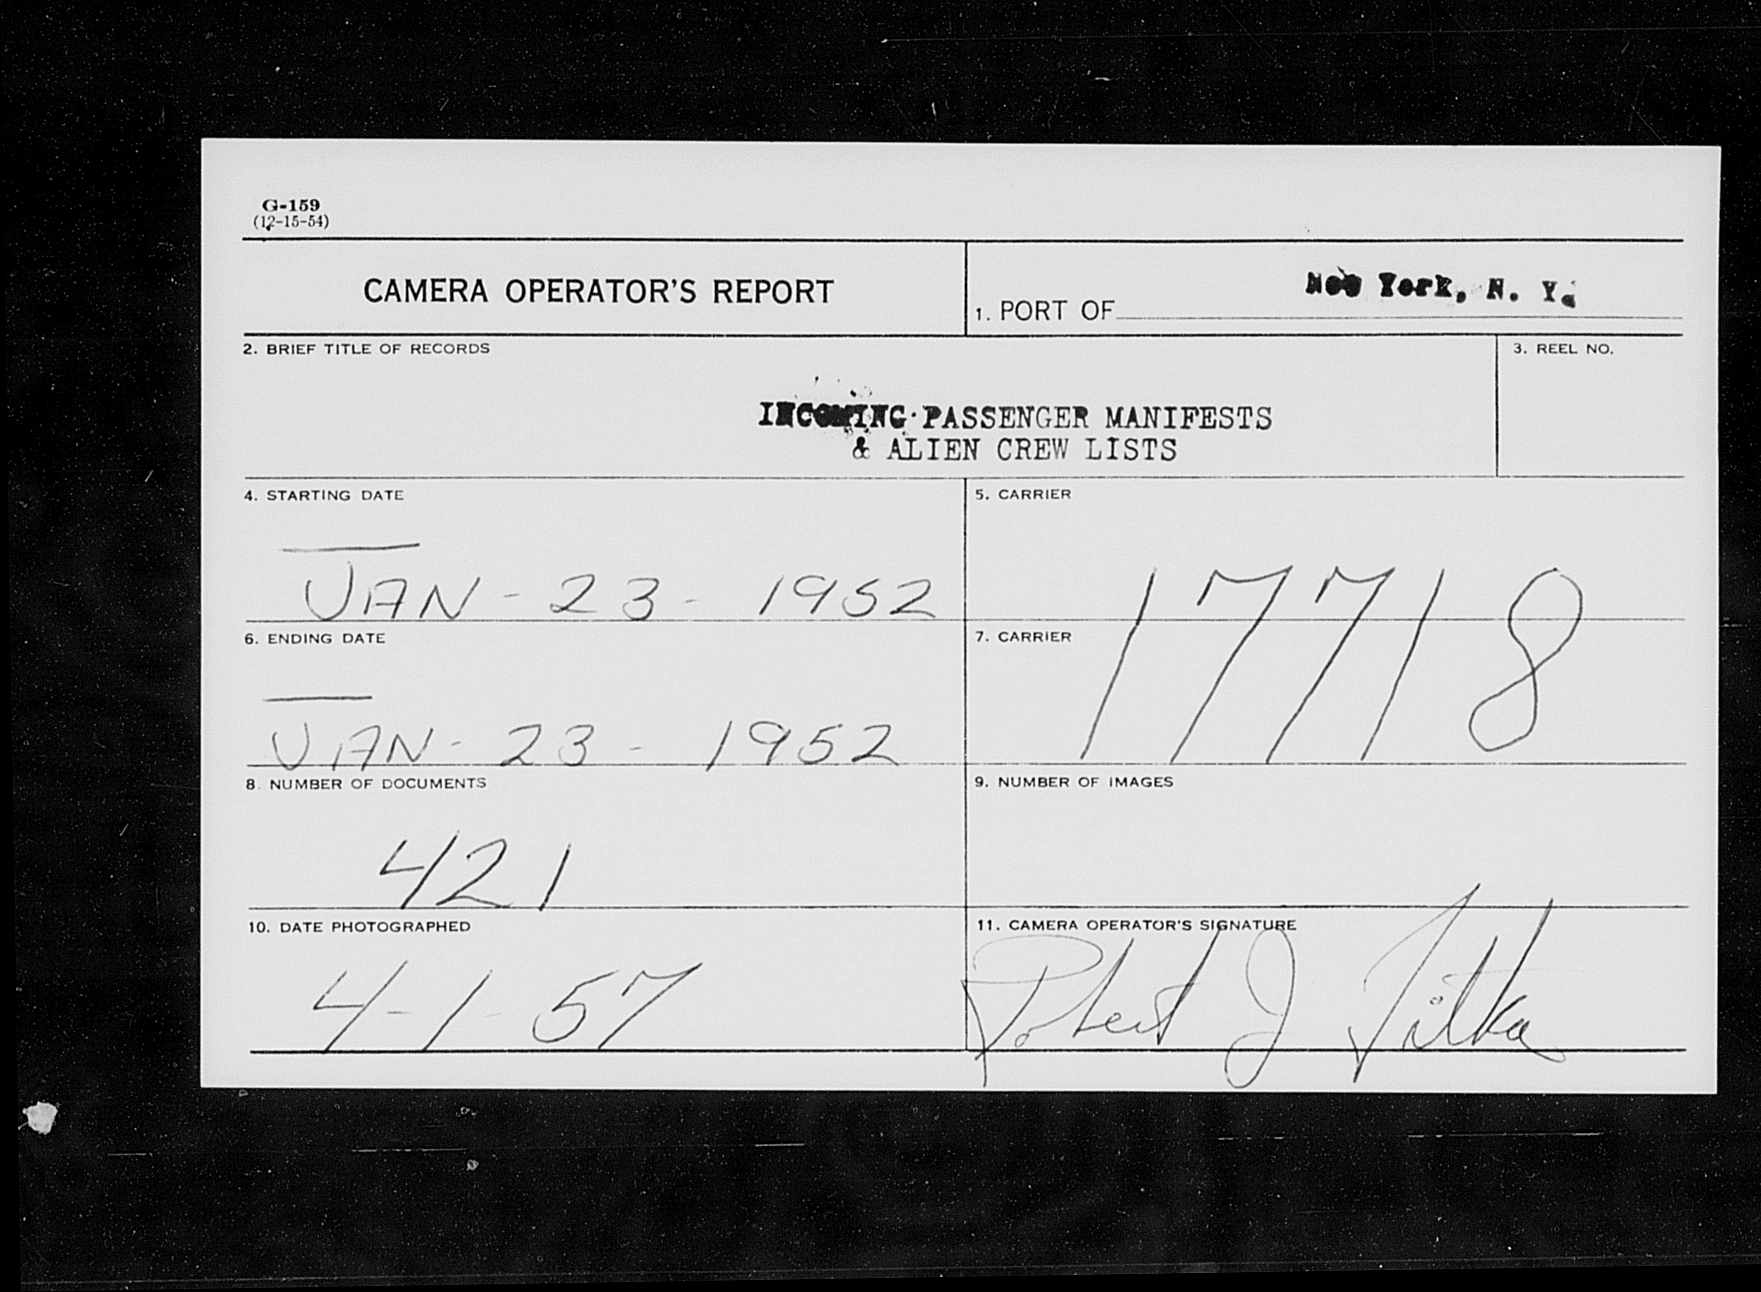 G-159
(12-15-54)
CAMERA OPERATOR'S REPORT
1. PORT OF New York, N. Y.
2. BRIEF TITLE OF RECORDS
3. REEL NO.
INCOMING PASSENGER MANIFESTS
& ALIEN CREW LISTS
4. STARTING DATE
5. CARRIER
JAN - 23 - 1952
17718
6. ENDING DATE
7. CARRIER
JAN - 23 - 1952
8. NUMBER OF DOCUMENTS
9. NUMBER OF IMAGES
421
10. DATE PHOTOGRAPHED
11. CAMERA OPERATOR'S SIGNATURE
4-1-57
Robert J